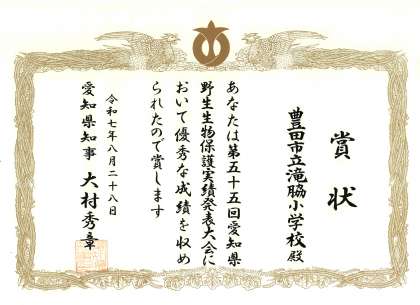 賞状
豊田市立滝脇小学校 殿
あなたは第五十五回愛知県
野生生物保護実績発表大会に
おいて優秀な成績を収め
られたので賞します
令和七年八月二十八日
愛知県知事 大村秀章